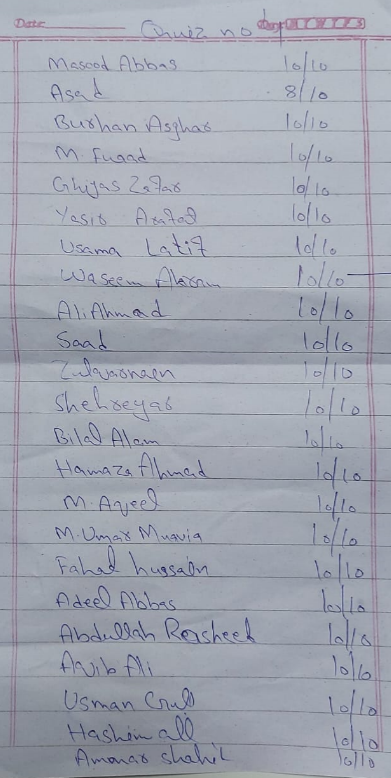 Date
Quiz no 1
Masood Abbas 10/10
Asad 8/10
Burhan Asghar 10/10
M. Fuaad 10/10
Ghiyas Zafar 10/10
Yasir Arafad 10/10
Usama Latif 10/10
Waseem Akram 10/10
Ali Ahmad 10/10
Saad 10/10
Zulqarnaen 10/10
Shehreyar 10/10
Bilal Alam 10/10
Hamaza Ahmad 10/10
M. Aqeel 10/10
M. Umar Muavia 10/10
Fahad hussain 10/10
Adeel Abbas 10/10
Abdullah Rasheed 10/10
Aqib Ali 10/10
Usman 10/10
Hashim ali 10/10
shahil 10/10